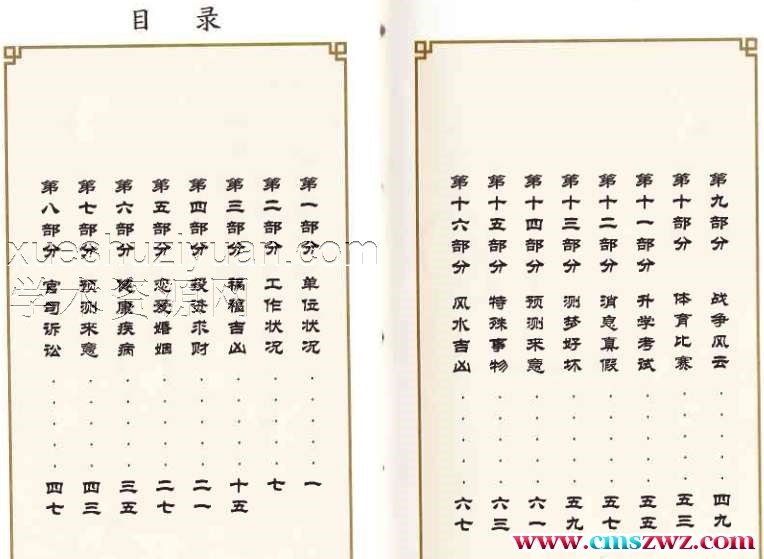 目 录
第一部分 单位状况······一
第二部分 工作状况······七
第三部分 祸福吉凶······十五
第四部分 投资求财······二一
第五部分 恋爱婚姻······二七
第六部分 健康疾病······三五
第七部分 预测来意······四三
第八部分 官司诉讼······四七
第九部分 战争风云······四九
第十部分 体育比赛······五三
第十一部分 升学考试······五五
第十二部分 消息真假······五七
第十三部分 测梦好坏······五九
第十四部分 预测来意······六一
第十五部分 特殊事物······六三
第十六部分 风水吉凶······六七
xueshuziyuan.com
学术资源网
www.cmszwz.com